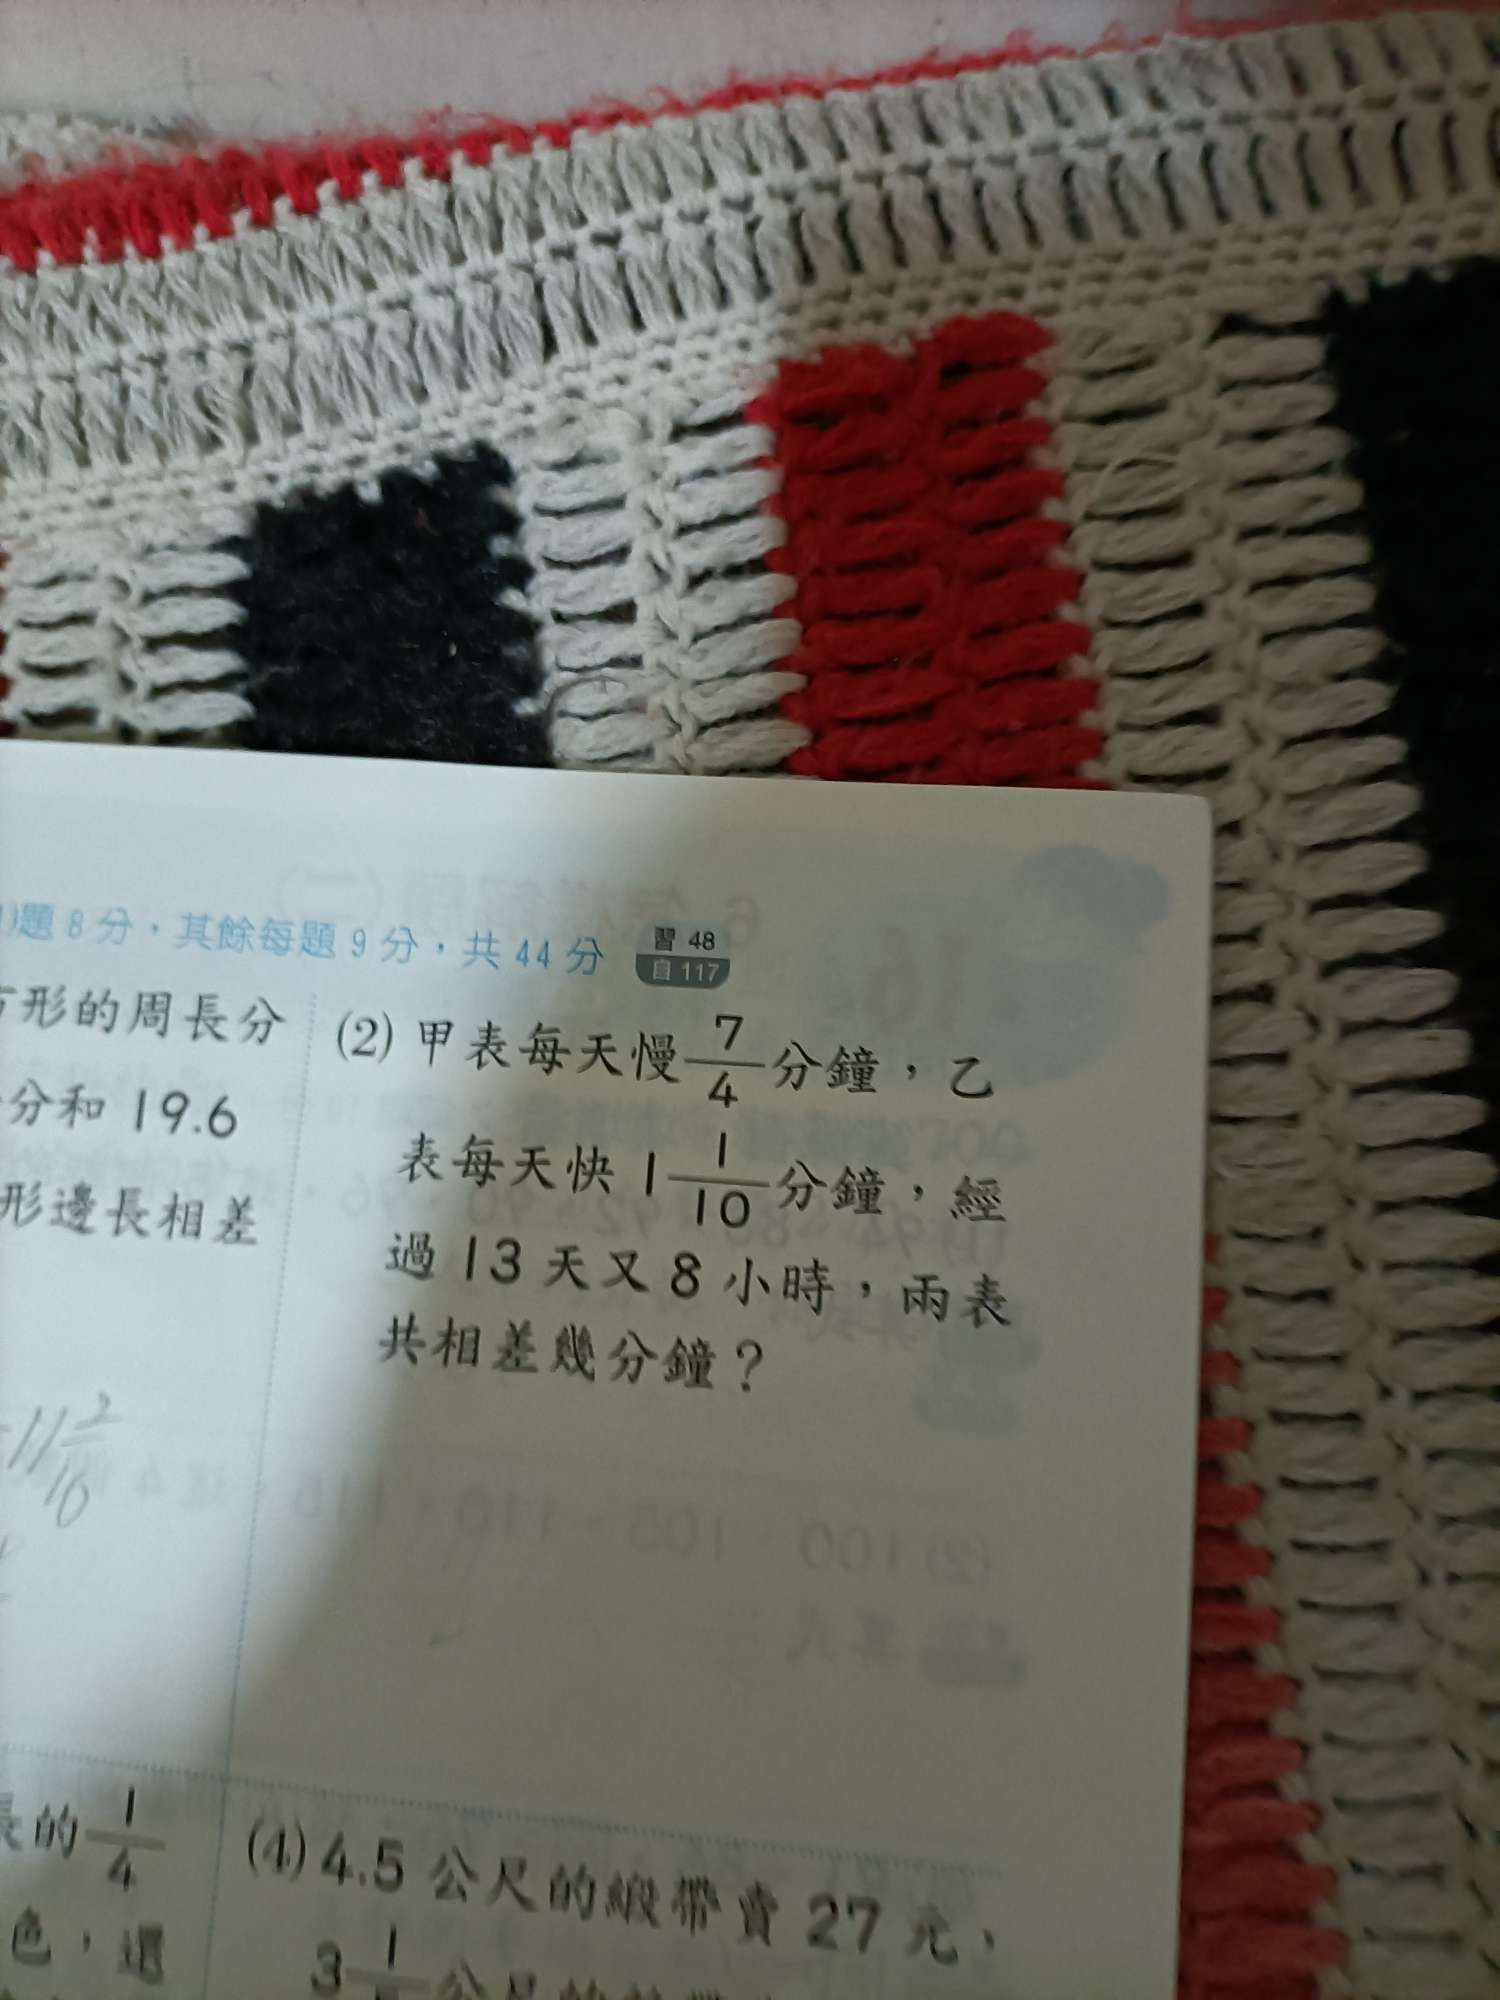 題 8 分，其餘每題 9 分，共 44 分
習 48
自 117
形的周長分
分和 19.6
形邊長相差
11 2/10
(2) 甲表每天慢 7/4 分鐘，乙
表每天快 1 1/10 分鐘，經
過 13 天又 8 小時，兩表
共相差幾分鐘？
長的 1/4
色，還
(4) 4.5 公尺的緞帶賣 27 元，